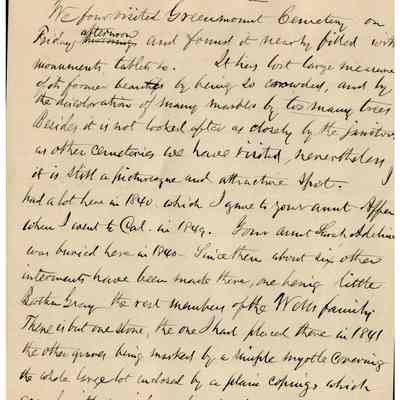 We four visited Greenmount Cemetery on
Friday afternoon and found it nearly filled with
monuments tablets &c. It has lost large measure
of its former beauties by being so crowded, and by
the discoloration of many marbles by too many trees
Besides it is not looked after as closely by the janitors
as other cemeteries we have visited, nevertheless
it is still a picturesque and attractive spot. I
had a lot here in 1840. which I gave to your aunt
when I went to Cal. in 1849. Your aunt Sarah Adeline
was buried here in 1840. Since then about six other
interments have been made there, one being little
Gray the rest members of the Wells family.
There is but one stone, the one I had placed there in 1841
the other graves being marked by a simple myrtle covering
the whole large lot enclosed by a plain copings which